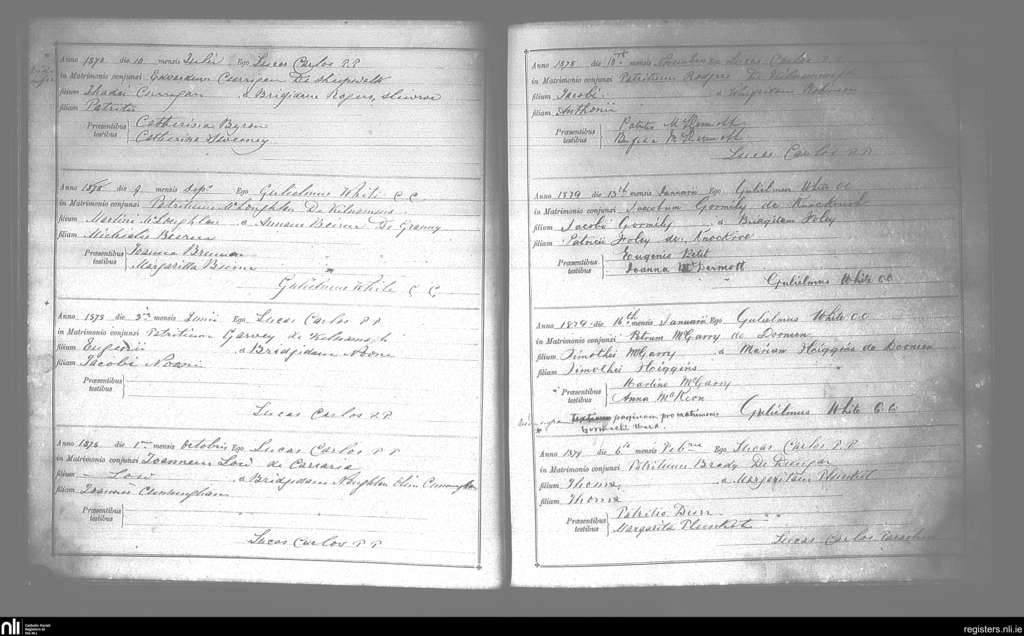 Anno 1878 die 10 mensis Julii Ego Lucas Carlos P.P
in Matrimonio conjunxi Currigan De Sheepwalk
filium Thadei Currigan a Brigidam Rogers,
filiam Patritii
Præsentibus testibus Catherina Byron
Catherina Sweeney
Anno 1878 die 9 mensis Sepr Ego Gulielmus White C C
in Matrimonio conjunxi Patritium McLoughlin De
filium Martini McLoughlin a Annam Beirne De Granny
filiam Michaelis Beirne
Præsentibus testibus Joanna Brennan
Margaritta Beirne
Gulielmus White C C
Anno 1878 die mensis Junii Ego Lucas Carlos P P
in Matrimonio conjunxi Patritium Garvey de
filium Eugenii a Bridgidam Noone
filiam Jacobi Noone
Præsentibus testibus
Lucas Carlos P.P
Anno 1878 die 1 mensis Octobris Ego Lucas Carlos P P
in Matrimonio conjunxi Joannem Low de
filium Low a Bridgidam Naughten olim Cunningham
filiam Joannis Cunningham
Præsentibus testibus
Lucas Carlos P P
Anno 1878 die 10th mensis Ego Lucas Carlos P
in Matrimonio conjunxi Patritium Rodgers De
filium Jacobi a
filiam Anthonii
Præsentibus testibus McDermott
McDermott
Lucas Carlos P P
Anno 1879 die 13th mensis Januarii Ego Gulielmus White CC
in Matrimonio conjunxi Jacobum Gormily de
filium Jacobi Gormily a Bridgitam Foley
filiam Patricii Foley de Knockroe
Præsentibus testibus Eugenio Petit
Joanna McDermott
Gulielmus White CC
Anno 1879 die 16th mensis Januarii Ego Gulielmus White C.C.
in Matrimonio conjunxi Petrum McGarry de Doonen
filium Timothei McGarry a Mariam Higgins de Doonen
filiam Timothei Higgins
Præsentibus testibus Martino McGarry
Anna McKeon
paginam pro matrimonio Gulielmus White C.C
Anno 1879 die 6th mensis Ego Lucas Carlos P.P.
in Matrimonio conjunxi Patritium Brady De
filium Thoma, a Margaritam Plunket
filiam Thoma
Præsentibus testibus Patritio Dunn
Margarita Plunket
Lucas Carlos
nli Catholic Parish Registers at the NLI
registers.nli.ie